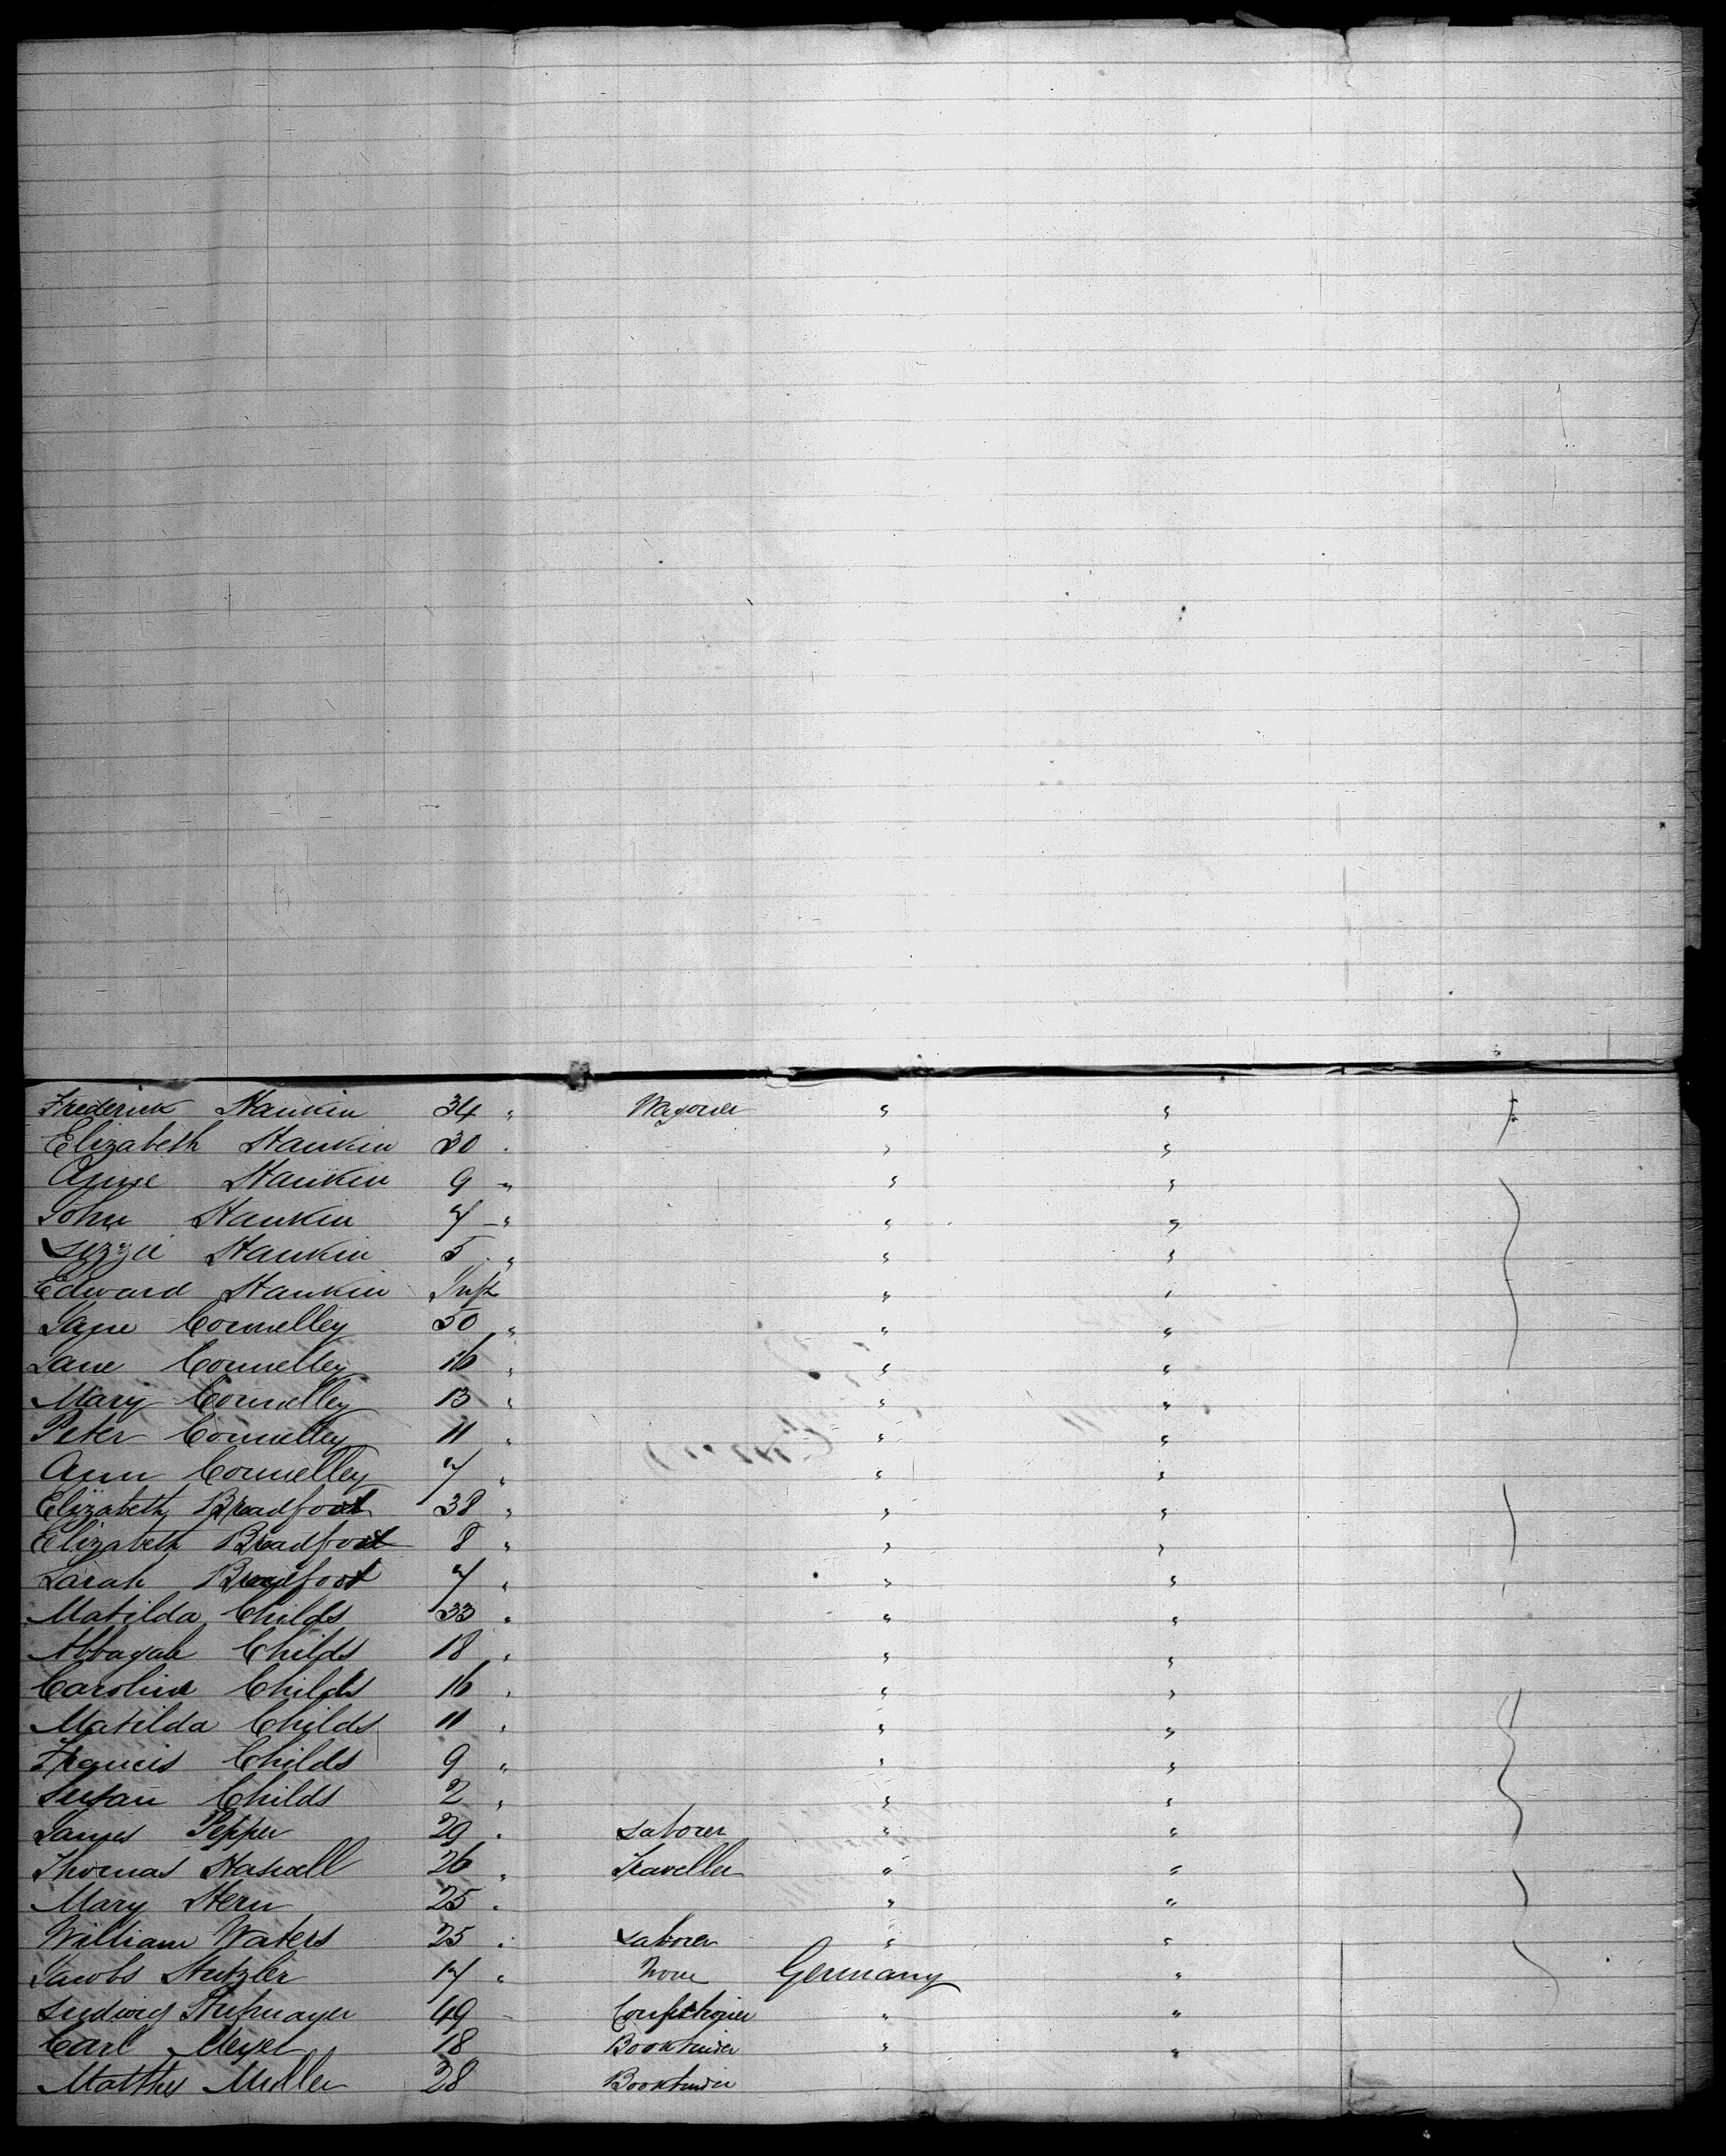 Frederick Hankin 34 " Wagoner " "
Elizabeth Hankin 30 " " "
Annie Hankin 9 " " "
John Hankin 7 " " "
Lizzie Hankin 5 " " "
Edward Hankin Inft " "
Jane Connelley 50 " " "
Jane Connelley 16 " " "
Mary Connelley 13 " " "
Peter Connelley 11 " " "
Ann Connelley 7 " " "
Elizabeth Broadfoot 38 " " "
Elizabeth Broadfoot 8 " " "
Sarah Broadfoot 7 " " "
Matilda Childs 33 " " "
Abbagale Childs 18 " " "
Caroline Childs 16 " " "
Matilda Childs 11 " " "
Francis Childs 9 " " "
Susan Childs 2 " " "
James Pepper 29 " Laborer " "
Thomas 26 " Traveller " "
Mary Stern 25 " " "
William Waters 25 " Laborer " "
Jacobs 17 " None Germany "
Ludwig 49 " "
Carl Meyer 18 Bookbinder " "
Mathes Muller 28 Bookbinder